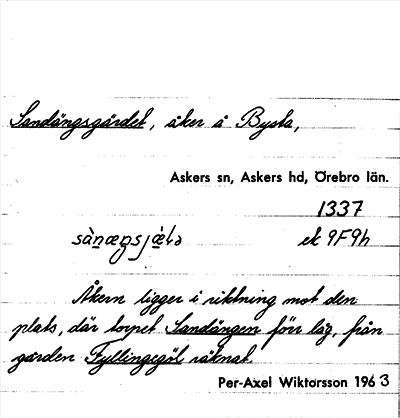 Sandängsgärdet, åker å Bysta,
Askers sn, Askers hd, Örebro län.
1337
sàn̲æŋsjæ̀ɫə ek 9F9h
Åkern ligger i riktning mot den
plats, där torpet Sandängen förr låg, från
gården Fyllingegöl räknat.
Per-Axel Wiktorsson 1963